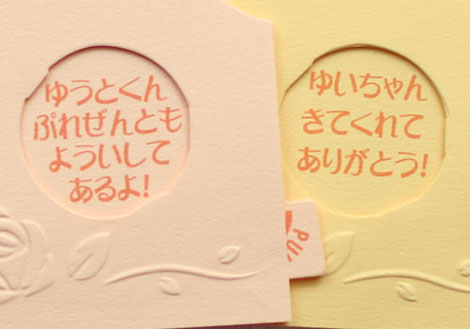 ゆうとくん
ぷれぜんとも
よういして
あるよ!
ゆいちゃん
きてくれて
ありがとう!